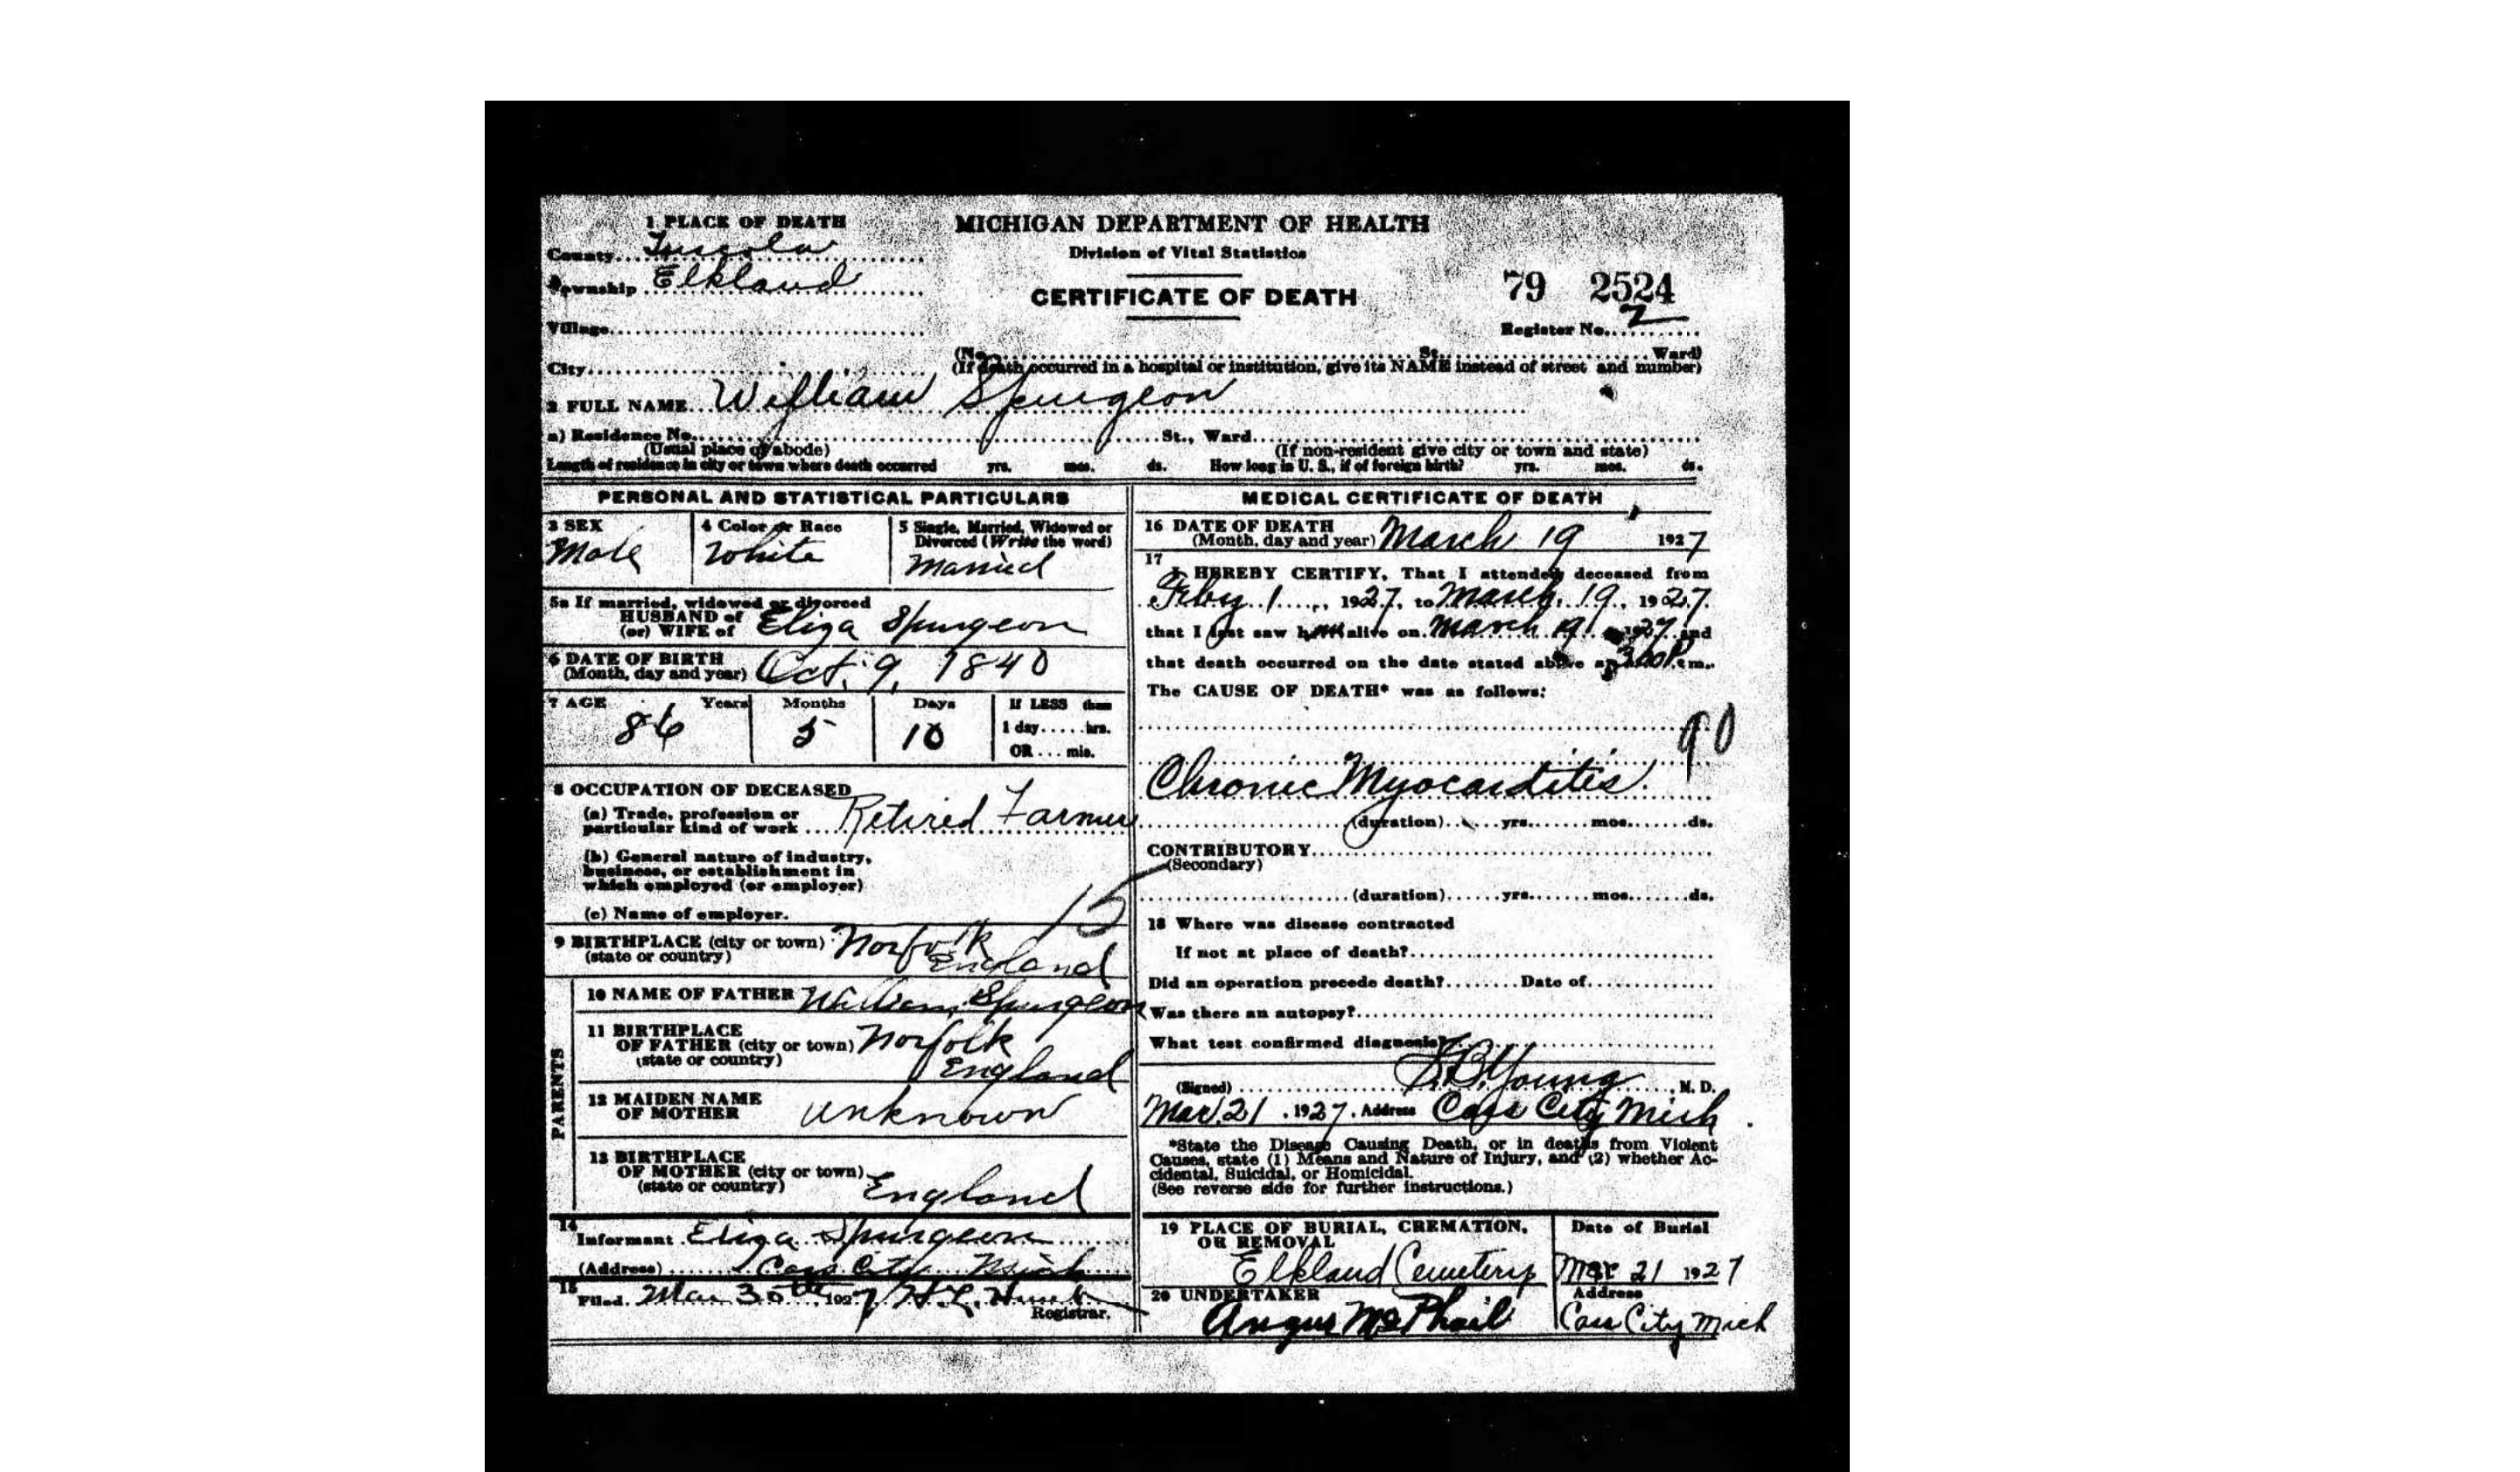 1 PLACE OF DEATH
County Tuscola
Township Elkland
Village
City
MICHIGAN DEPARTMENT OF HEALTH
Division of Vital Statistics
CERTIFICATE OF DEATH
79 2524
Register No. 2
(No. St. Ward)
(If death occurred in a hospital or institution, give its NAME instead of street and number)
2 FULL NAME William Spurgeon
a) Residence No. St., Ward
(Usual place of abode) (If non-resident give city or town and state)
Length of residence in city or town where death occurred yrs. mos. ds. How long in U. S., if of foreign birth? yrs. mos. ds.
PERSONAL AND STATISTICAL PARTICULARS
3 SEX
Male
4 Color or Race
White
5 Single, Married, Widowed or
Divorced (Write the word)
Married
5a If married, widowed or divorced
HUSBAND of
(or) WIFE of Eliza Spurgeon
6 DATE OF BIRTH
(Month, day and year) Oct. 9, 1840
7 AGE Years Months Days If LESS than
1 day hrs.
OR mis.
86 5 10
8 OCCUPATION OF DECEASED
(a) Trade, profession or
particular kind of work Retired Farmer
(b) General nature of industry,
business, or establishment in
which employed (or employer)
(c) Name of employer.
15
9 BIRTHPLACE (city or town) Norfolk
(state or country) England
PARENTS
10 NAME OF FATHER William Spurgeon
11 BIRTHPLACE
OF FATHER (city or town) Norfolk
(state or country) England
12 MAIDEN NAME
OF MOTHER unknown
13 BIRTHPLACE
OF MOTHER (city or town)
(state or country) England
14
Informant Eliza Spurgeon
(Address) Cass City Mich
15
Filed Mar 30th 1927 H. L.
Registrar.
MEDICAL CERTIFICATE OF DEATH
16 DATE OF DEATH
(Month, day and year) March 19 1927
17
I HEREBY CERTIFY, That I attended deceased from
Feby 1, 1927, to March 19, 1927
that I last saw him alive on March 19 1927 and
that death occurred on the date stated above at 3:00 P.m.
The CAUSE OF DEATH* was as follows:
90
Chronic Myocarditis.
(duration) yrs. mos. ds.
CONTRIBUTORY
(Secondary)
(duration) yrs. mos. ds.
18 Where was disease contracted
If not at place of death?
Did an operation precede death? Date of
Was there an autopsy?
What test confirmed diagnosis?
(Signed) Young M. D.
Mar. 21, 1927. Address Cass City Mich
*State the Disease Causing Death, or in deaths from Violent
Causes, state (1) Means and Nature of Injury, and (2) whether Ac-
cidental, Suicidal, or Homicidal.
(See reverse side for further instructions.)
19 PLACE OF BURIAL, CREMATION,
OR REMOVAL
Elkland Cemetery
Date of Burial
Mar 21 1927
20 UNDERTAKER
Angus McPhail
Address
Cass City Mich